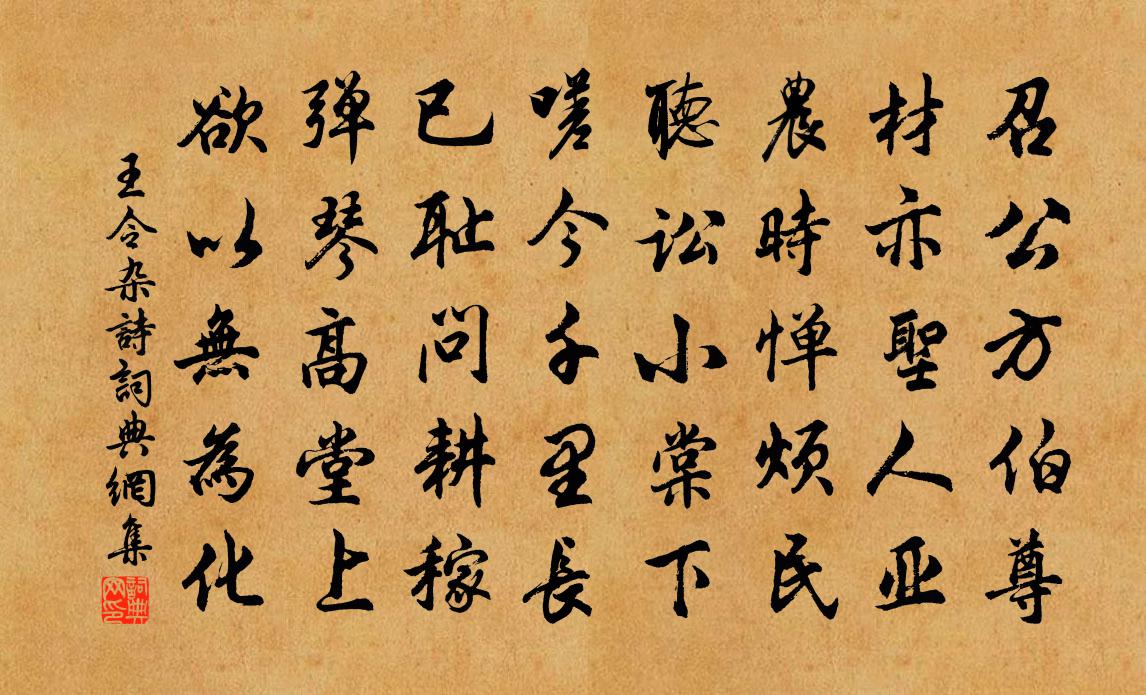 召公方伯尊
材亦聖人亚
農時惮烦民
聽訟小棠下
嗟今千里長
已耻问耕稼
弹琴高堂上
欲以無為化
王令杂詩詞典網集
詞典网印